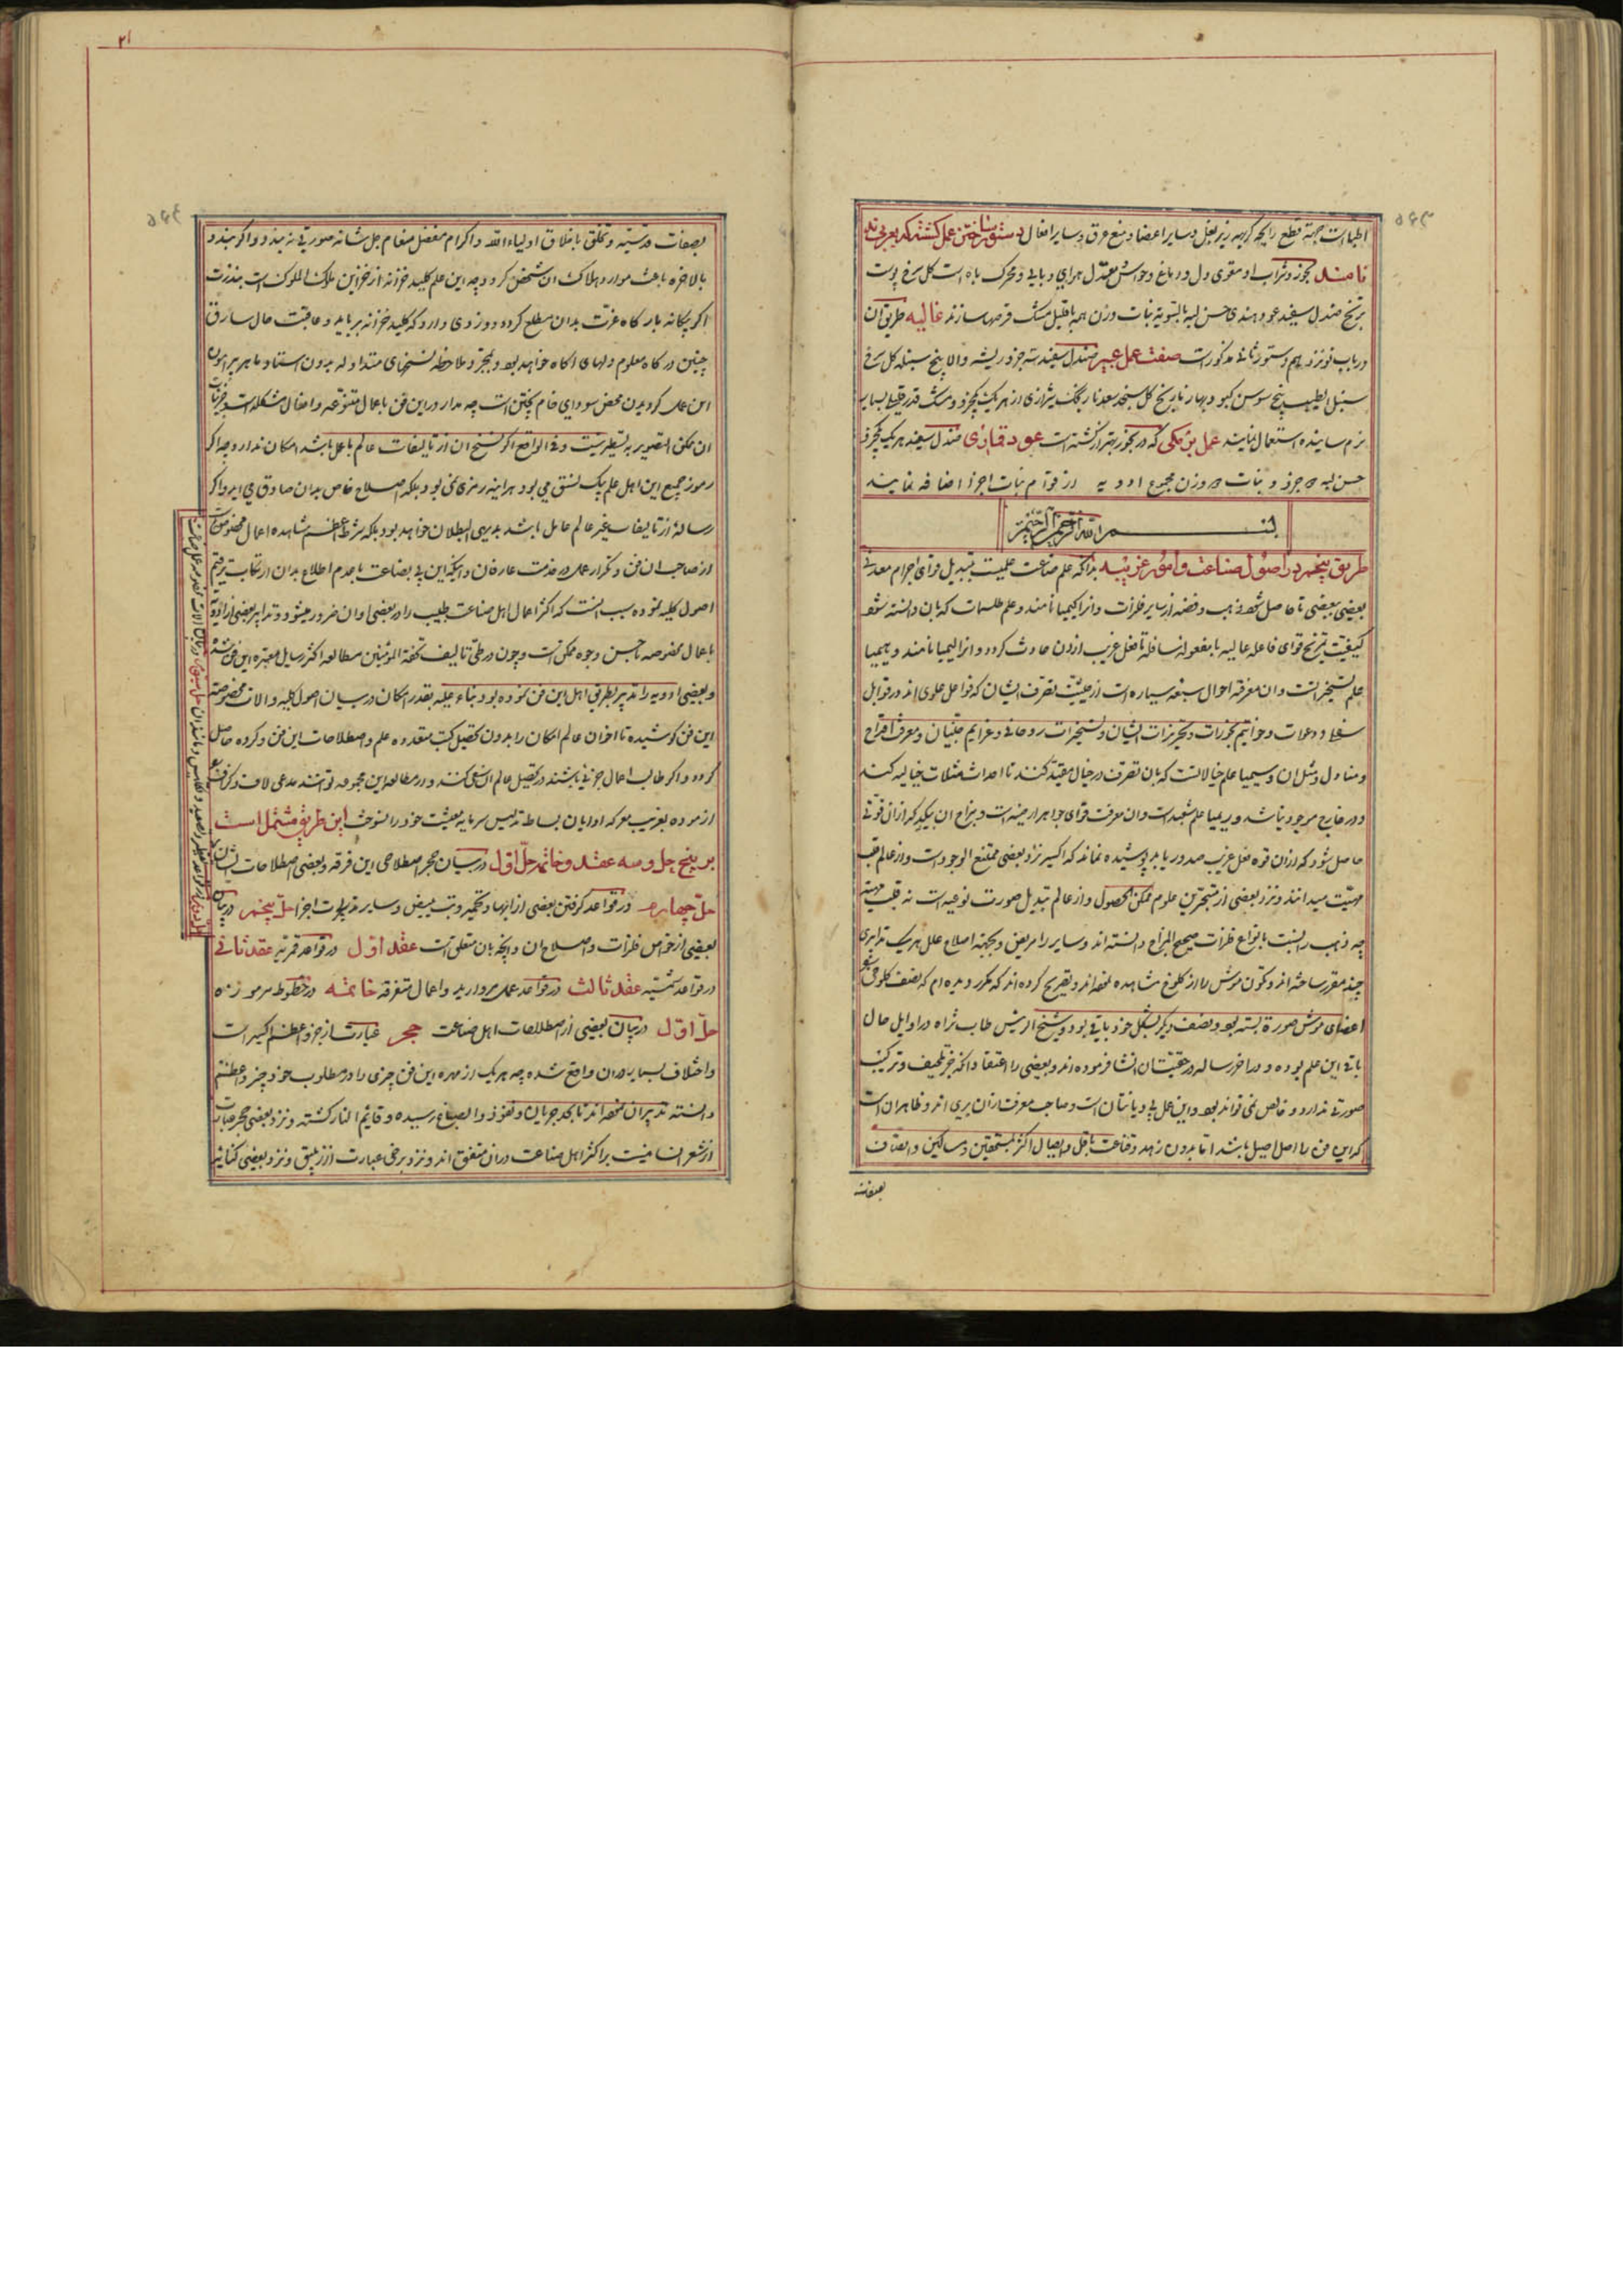 اطبا است جهة قطع رایحه کریهه زیر بغل و سایر اعضا و منع عرق و سایر افعال دستور ساختن عمل کشته که بعربی ند
نامند بخور و شراب او مقوی دل و دماغ و حواس معدل هوای وبایی و محرک باه است کل سرخ پوست
ترنج صندل سفید عود هندی حسن لبه بالسویه نبات وزن همه باقلیل مشک قرصها سازند غالیه طریق آن
در باب نوزدهم دستور ثانی مذکور است صفت عمل عبیر صندل سفید سه جزو ریشه والا پنج سنبله کل سرخ
سنبل الطیب بیخ سوسن کبود بهار نارنج کل سنجد سعد نارنجک شیرازی از هریک یکجزو و مشک قدر قلیل بسیار
نرم ساییده استعمال نمایند عمل بن مکی که در بخور بهتر از کشته است عود قماری صندل سفید هریک یکجزو
حسن لبه جزو و نبات وزن مجموع ادویه در قوام نبات اجزا اضافه نمایند
بسم الله الرحمن الرحیم
طریق پنجم در اصول صناعت و امور غریبه بدانکه علم صناعت علمیست بتبدیل قوای اجرام معدنی
بعضی ببعضی تا حاصل شود ذهب و فضه از سایر فلزات و انرا کیمیا نامند و علم طلسمات که بان دانسته شود
کیفیت تمزیج قوای فاعله عالیه با منفعله سافله تا فعل غریب از ان حادث کردد و انرا لیمیا نامند و هیمیا
علم تسخیر است و ان معرفة احوال سبعه سیاره است از حیثیت تصرف ایشان که فواعل علوی اند در قوابل
سفلی و دعوات و خواتیم و بخورات ایشان و تسخیرات روحانی و عزایم جنیان و معرفت اقداح
و منادل و مثل ان و سیمیا علم خیالاتست که بان تصرف در خیال مقید کنند تا احداث مثلات خیالیه کنند
و در خارج موجود نباشد و ریمیا علم شعبده است و ان معرفت قوای جواهر ارضیه است و مزاج ان بیکدیکر از ان قوتی
حاصل شود که از ان قوه فعل غریب صدور یابد پوشیده نماند که اکسیر نزد بعضی ممتنع الوجود است و از عالم قلب
مهیت میدانند و نزد بعضی از متبحرین علوم ممکن الحصول و از عالم تبدیل صورت نوعیه است نه قلب مهیة
چه ذهب را نسبت بانواع فلزات صحیح المزاج دانسته اند و سایر را مریض و بجهة اصلاح علل هریک تدابیری
چند مقرر ساخته اند و تکون موش را از کلوخ مشاهده نموده اند و تصریح کرده اند که مکرر دیده ام که نصف کلوخی
اعضای موش صورة بسته بود و نصف دیکر بشکل خود باقی بود و شیخ الرئیس طاب ثراه در اوایل حال
این علم بوده و در اخر رساله در حقیقتان انشا فرموده اند و بعضی را اعتقاد انکه جز تلطیف و ترکیب
صورتی ندارد و خالص نمی تواند بود و این عمل بی دیانتان است و صاحب معرفت از ان بری اند و ظاهر ان است
که این فن را اصل اصیل باشد اما بدون زهد و قناعت باقل و ایصال اکثر بمستحقین و مساکین و اتصاف
بصفات
بصفات قدسیه و تخلق باخلاق اولیاء الله و اکرام مفضل منعام جل شانه صورتی نمی بندد و اکر بندد
بالاخره باعث موارد هلاکت ان شخص کردد چه این علم کلید خزانه از خزاین ملک الملوک است
اکر بیکانه بار کاه عزت بدان مطلع کردد دزدی دارد که کلید خزانه برباید و عاقبت حال سارق
چنین درکاه معلوم دلهای اکاه خواهد بود و بمجرد ملاحظه نسخهای متداوله بدون استاد ماهر پیرامون
این عمل کردیدن محض سودای خام پختن است چه مدار در این فن باعمال متنوعه و افعال مشکله است و جزئیات
ان ممکن التصویر به تسطیر نیست و فی الواقع اکر نسخ ان از تالیفات عالم باعمل باشد امکان ندارد چه اکر
رموز جمیع این اهل علم بیک نسق می بود هراینه رمزی نمی بود بلکه اصطلاح خاص بدان صادق می امد و اکر
رساله از تالیفات غیر عالم عامل باشد بدیهی البطلان خواهد بود بلکه شرط اعظم مشاهده اعمال مخصوصه
از صاحب ان فن و تکرار عمل در خدمت عارفان و اینکه این بی بضاعت با عدم اطلاع بدان ارتکاب ترقیم
اصول کلیه نموده سبب انست که اکثر اعمال اهل صناعت طبیب را در بعضی اوان ضرور میشود و تدابیر بعضی از ادویه
باعمال مخصوصه باحسن وجوه ممکن است و چون در طی تالیف تحفة المؤمنین مطالعه اکثر رسایل معتبره این فن شده
و بعضی ادویه را تدبیر بطریق اهل این فن نموده بود بناء علیه بقدر امکان در بیان اصول کلیه و الات مخصوصه
این فن کوشیده تا اخوان عالم امکان را بدون تحصیل کتب متعدده علم و اصطلاحات این فن و کرده حاصل
کردد و اکر طالب اعمال جزئی باشند در تحصیل عالم ان سعی کنند و در مطالعه این مجموعه توانند مدعی لاف و کزاف بود
ازموده بفریب معرکه ارایان بساط تلبیس سرمایه معیشت خود را نسوخت این طریق مشتملست
بر پنج حل و سه عقد و خاتمه حل اول در بیان حجر اصطلاحی این فرقه و بعضی اصطلاحات ایشان
حل چهارم در قواعد کرفتن بعضی از ادهان و تحمیر و تبییض و سایر مدبرات اجزا حل پنجم در بیان
بعضی از خواص فلزات و اصلاح ان و انچه بان متعلق است عقد اول در قواعد قمریه عقد ثانی
در قواعد شمسیه عقد ثالث در قواعد عمل مروارید و اعمال متفرقه خاتمه در خطوط مرموزه
حل اول در بیان بعضی از اصطلاحات اهل صناعت حجر عبارت از جزو اعظم اکسیر است
و اختلاف بسیار در ان واقع شده چه هریک از مهره این فن چیزی را در مطلوب خود جزو اعظم
دانسته تدبیر ان نموده اند تا بحد جریان و نفوذ و انصباغ رسیده و قایم النار کشته و نزد بعضی حجر عبارت
از شعر انسانیست و اکثر اهل صناعت در ان متفق اند و نزد برخی عبارت از زیبق و نزد بعضی کنایه